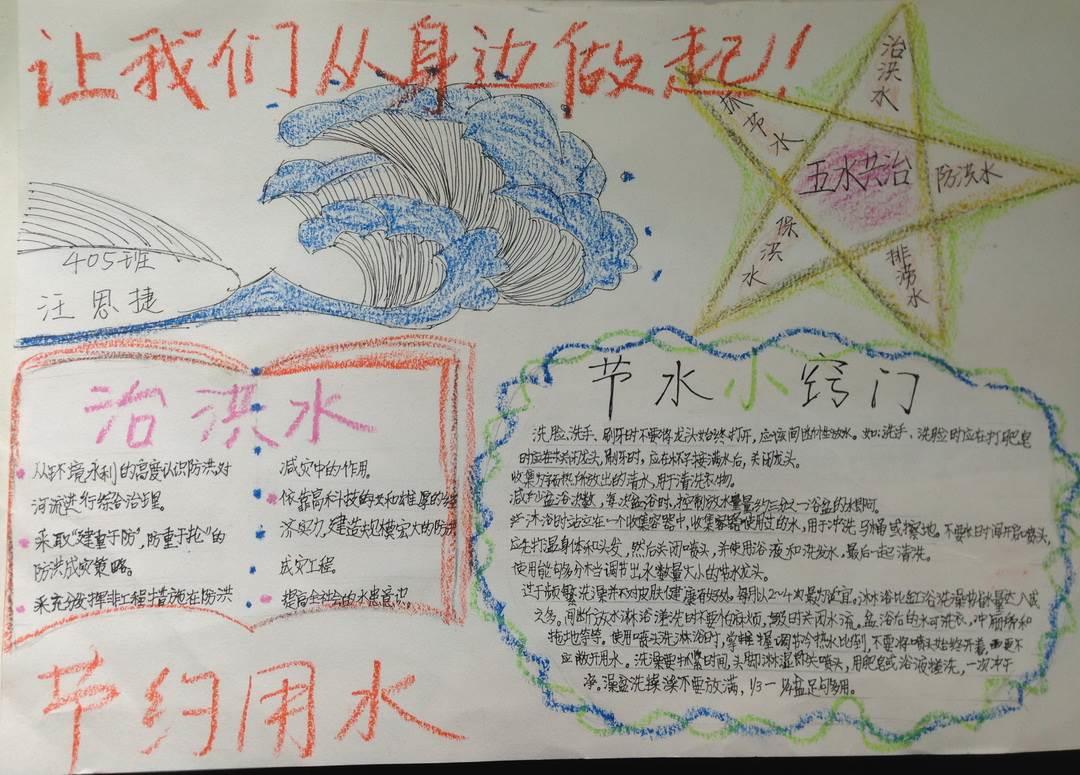 让我们从身边做起!!
治洪水
抓节水
五水共治
防洪水
保洪水
排涝水
405班
汪恩捷
治洪水
从环境水利的高度认识防洪对
河流进行综合治理。
采取“建重于防,防重于抢”的
防洪成灾策略。
采充分发挥非工程措施在防洪
减灾中的作用
依靠高科技的 和雄厚的经
济实力,建造规模宏大的防洪
成灾工程。
提高全社会的水患意识
节水小窍门
洗脸、洗手、刷牙时不要将龙头始终打开,应该间断性放水。如:洗手、洗脸时应在打肥皂
时应在关闭龙头,刷牙时,应在杯子接满水后,关闭龙头。
收集 所放出的清水,用于清洗衣物。
减少盆浴次数,每次盆浴时,控制放水量,约三分一浴盆的水即可。
沐浴时站立在一个收集容器中,收集容器使用过的水,用于冲洗马桶或擦地。不要长时间开启喷头,
应先打湿身体和头发,然后关闭喷头,并使用浴液和洗发水,最后一起清洗。
使用能够分档调节出水数量大小的节水龙头。
过于频繁洗澡并不对皮肤健康有好处,每月以 次最为适宜。淋浴比缸浴洗澡节水量达八成
之多。间断放水淋浴 洗时不要 ,要及时关闭水流。盆浴后的水可洗衣、冲厕所和
拖地等等。使用喷头洗淋浴时,掌握 调节冷热水比例,不要将喷头始终开着,更不
应敞开用水。洗澡要抓紧时间,头脚淋湿即关喷头,用肥皂或浴液搓洗,一次冲干
净。澡盆洗澡 不要放满,1/3一 盆足够用。
节约用水